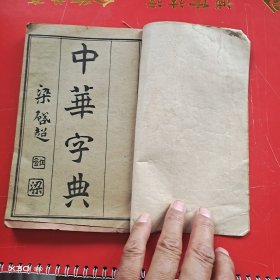 中華字典
梁啓超
梁